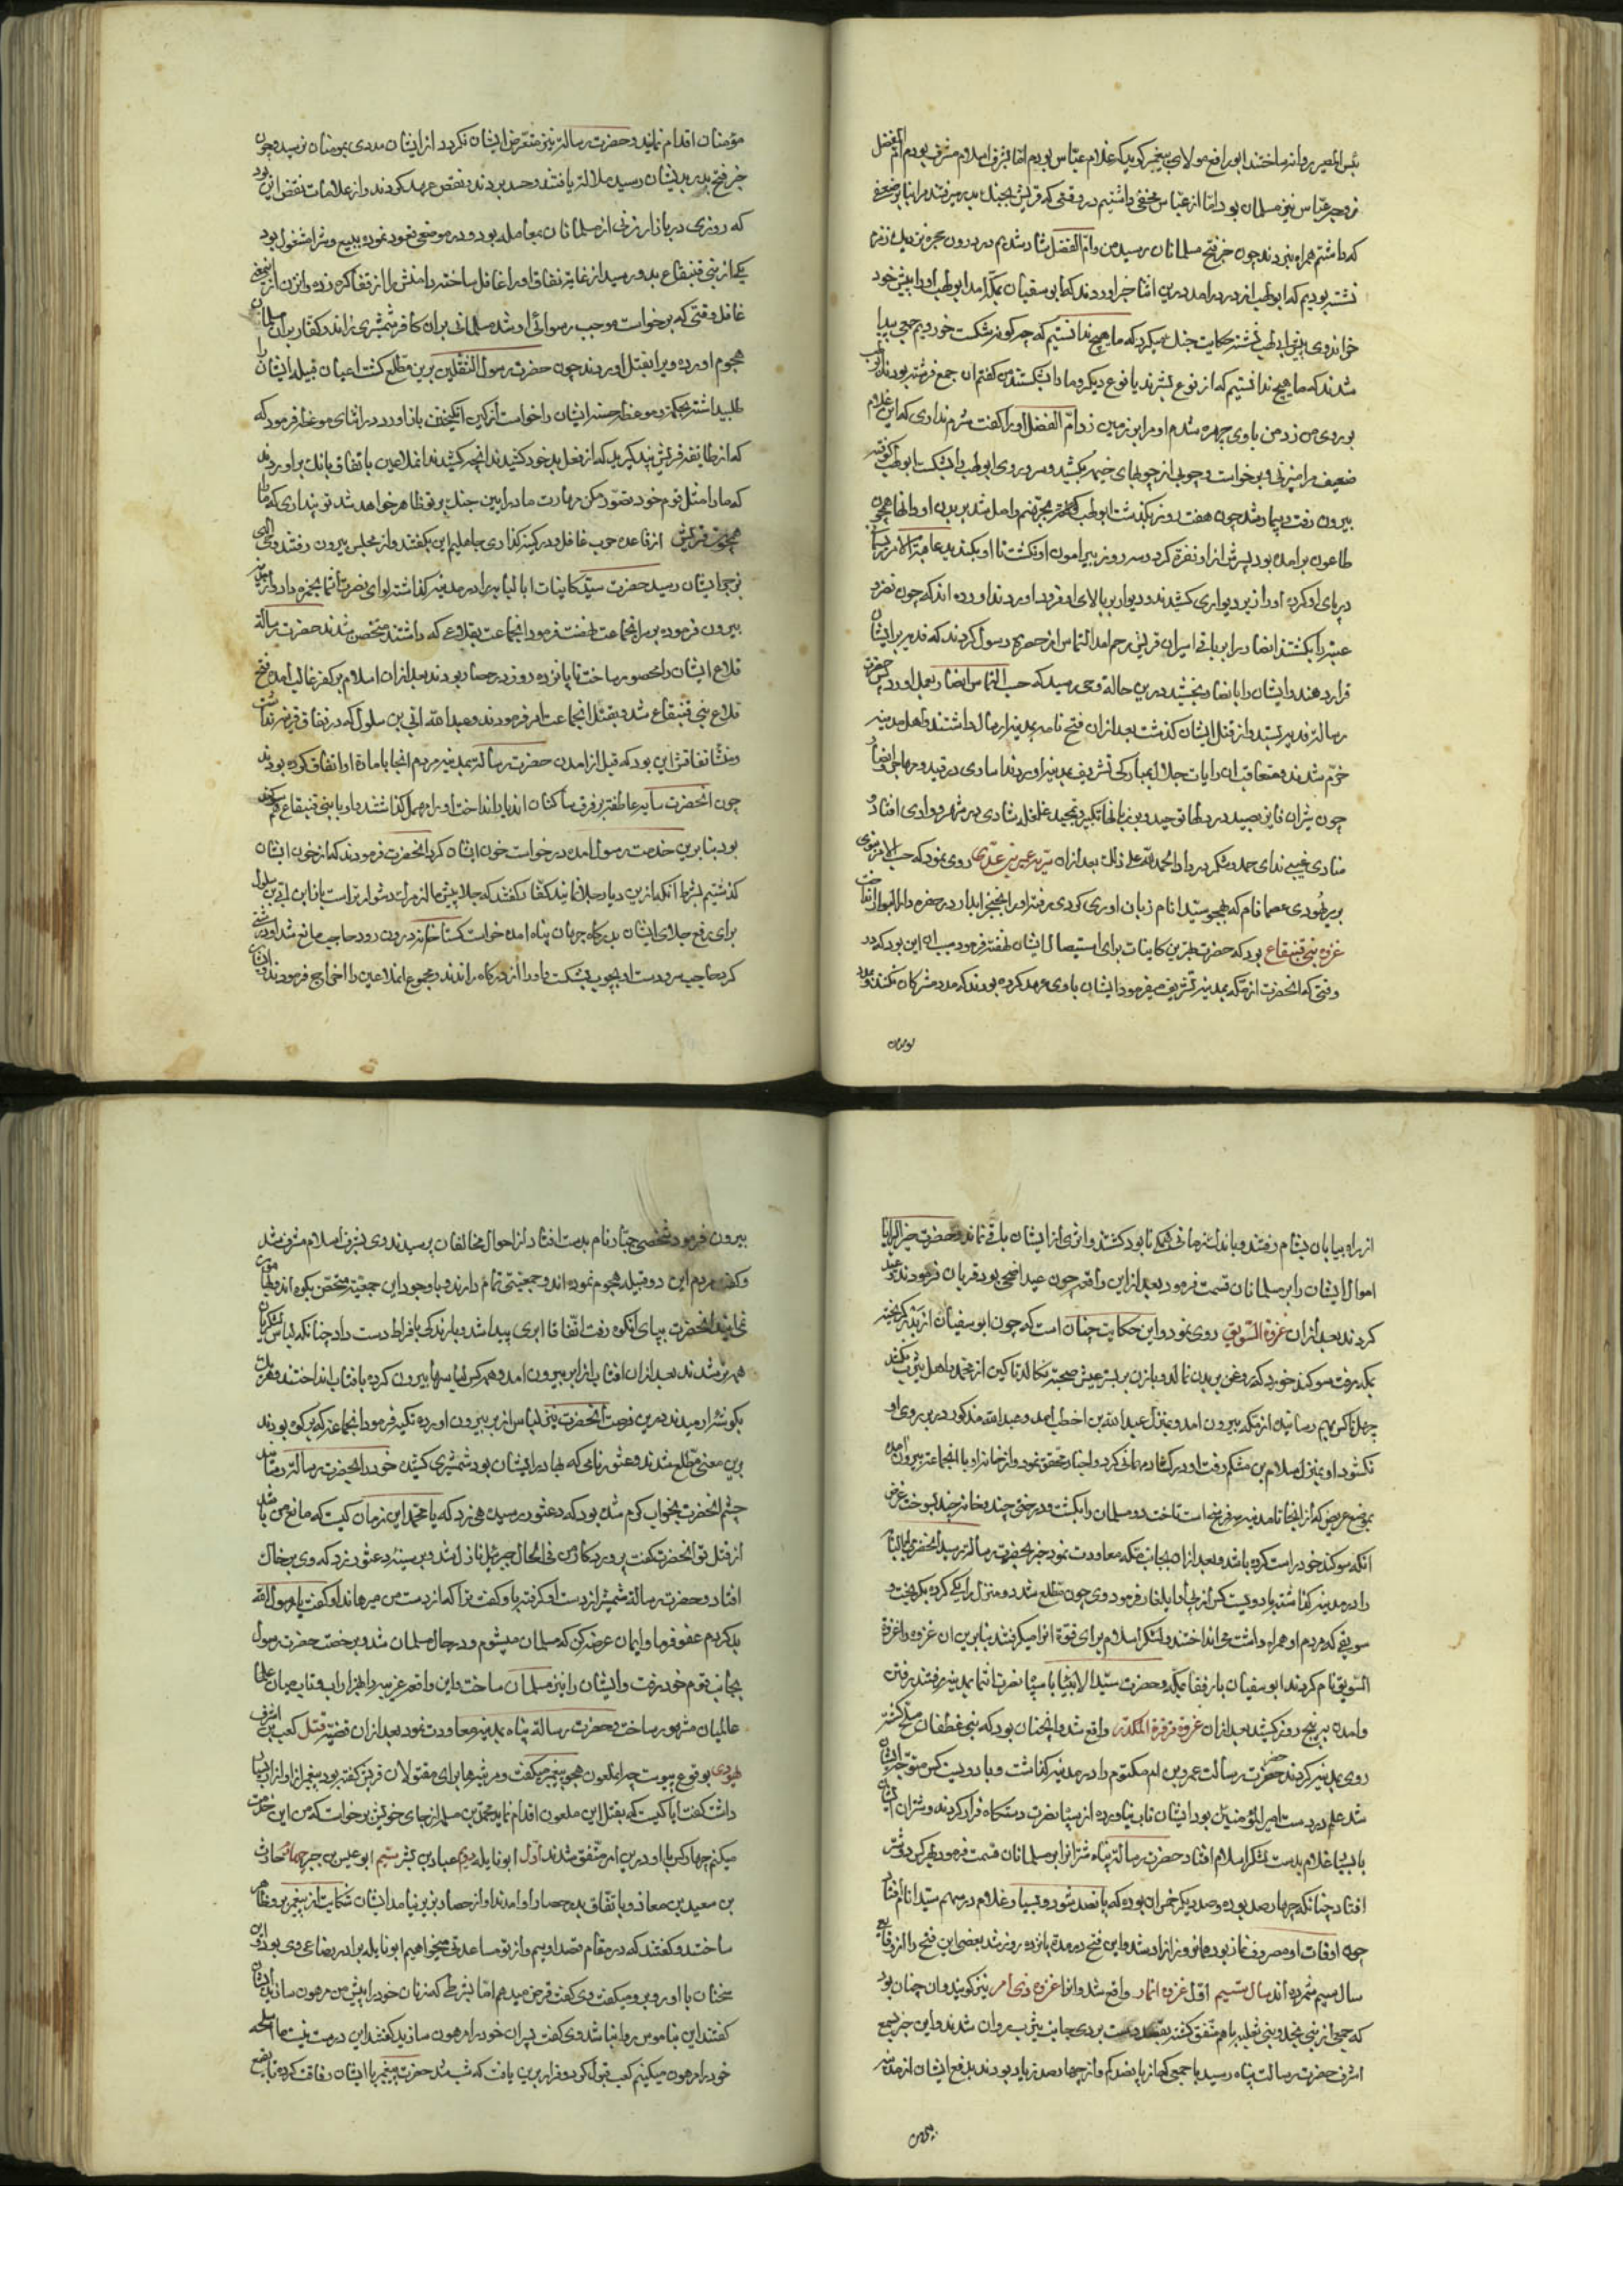 بئس المصیر روانه ساختند ابورافع مولای پیغمبر گوید که غلام عباس بودم اما بشرف اسلام مشرف بودم ام الفضل
زوجه عباس نیز مسلمان بود اما از عباس مخفی داشتیم در وقتی که قریش بجنك بدر میرفتند مرا بنابر ضعفی
که داشتم همراه نبردند چون خبر فتح مسلمانان رسید من و ام الفضل شاد شدیم در درون حجره نزدیك زمزم
نشسته بودیم که ابولهب از در درامد درین اثنا خبر اوردند که ابوسفیان بمکه امد ابولهب او را پیش خود
خواند وی پیش ابولهب نشسته حکایت جنك میکرد که ما هیچ ندانستیم که چه کونه شکست خوردیم جمعی پیدا
شدند که ما هیچ ندانستیم که از نوع بشرند یا نوع دیکر و ما را بشکستند من کفتم ان جمع فرشته بودند ابولهب
بر روی من زد من با وی چهره شدم او مرا بر زمین زد ام الفضل او را کفت شرم نداری که این غلام
ضعیف را میزنی و برخواست و چوبی از چوبهای خیمه بکشید و بر سر و روی ابولهب را بشکست ابولهب کوفته
بیرون رفت و بیمار شد چون هفت روز بکذشت ابولهب بجهنم واصل شد بر بدن او دانها همچون
طاعون برامده بود پسرش از او نفرة کرد و سه روز پیرامون او نکشت تا او بکندید عاقبة الامر ریسمان
در پای او کرده او را زیر دیواری کشیدند و دیوار بر بالای او فرود اوردند اورده اند که چون نضر و
عتبه را بکشتند انصار را بر باقی اسیران قریش رحم امد التماس از حضرة رسول کردند که فدیه بر ایشان
قرار دهند و ایشان را بانصار بخشید درین حالة وحی رسید که حسب التماس انصار بعمل اورد پس حضرت
رسالة فدیه بستد و از قتل ایشان کذشت بعد ازان فتح نامه بمدینه ارسال داشتند و اهل مدینه
خرم شدند و متعاقب ان رایات جلال بمبارکی تشریف بمدینه اوردند اساری در قید و مهاجر و انصار
چون شیران فایز بصید در دلها توحید و بر زبانها تکبیر و تمجید غلغله شادی در شهر و وادی افتاد و
منادی غیبی ندای حمد و شکر در داد الحمد لله علی ذلك بعد ازان سریه عمیر بن عدی روی نمود که حسب الامر نبوی
بر یهودی عصما نام که بهجو سید انام زبان اوری کردی رفته او را بخنجر ابدار در حفره دار البوار انداخت
غزوه بنی قنیقاع بود که حضرت بهترین کاینات برای استیصال ایشان نهضة فرمود سبب ان این بود که در
وقتی که انحضرت از مکه بمدینه تشریف میفرمود ایشان با وی عهد کرده بودند که مدد مشرکان نکنند و مدد
مومنان
مؤمنان اقدام نمایند و حضرت رسالة نیز متعرض ایشان نکردد از ایشان مددی بمومنان نرسید و چون
خبر فتح بدر بدیشان رسید ملالة یافتند و حسد بردند و نقض عهد کردند و از علامات نقض این بود
که روزی در بازار زنی از مسلمانان بمعامله بود و در موضعی قعود نموده ببیع و شرا مشغول بود
یکی از بنی قنیقاع بدو رسید از غایة نفاق او را غافل ساخته دامنش را از قفا کره زده و ان زن از انمعنی
غافل وقتی که برخواست موجب رسوائی او شد مسلمانی بران کافر شمشیری زاند و کفار بران مسلمان
هجوم اورده و یرا بقتل اوردند چون حضرت رسول الثقلین برین مطلع کشت اعیان قبیله ایشان را
طلبید اشته بحکمة و موعظه حسنه ایشان را خواست از کین انکیختن باز اورد در اثنای موعظه فرمود که
که از طایفه قریش پند کیرید که از فعل بد خود کشیدند انچه کشیدند انملاعین باتفاق بانك براوردند
که ما را مثل قوم خود تصور مکن مهارت ما در ایین جنك بر تو ظاهر خواهد شد تو پنداری که ما را
همچون قریش از قاعده حرب غافل و در کینه کذاری جاهلیم این بکفتند و از مجلس بیرون رفتند وحی الهی
بزجر ایشان رسید حضرت سید کاینات ابا لبابه را در مدینه کذاشته لوای نصرت انتما بحمزه داد و از مدینه
بیرون فرموده بر سر انجماعت نهضت فرمود انجماعت بقلاعی که داشتند متحصن شدند حضرت رسالة
قلاع ایشان را محصور ساخت تا پانزده روز در حصار بودند بعد ازان اسلام بر کفر غالب امده فتح
قلاع بنی قنیقاع شد و بقتل انجماعت امر فرمودند و عبد الله ابی بن سلول که در نفاق قرینه نداشت
و منشا نفاقش این بود که قبل از امدن حضرت رسالة بمدینه مردم انجا بامارة او اتفاق کرده بودند
چون انحضرت سایه عاطفة بر فرق ساکنان اندیار انداخت او را مهمل کذاشتند و او با بنی قنیقاع هم سوکند
بود بنابرین خدمت رسول امده درخواست خون ایشان کرد انحضرت فرمودند که از خون ایشان
کذشتیم بشرط انکه ازین دیار جلا نمایند کفار کفتند که جلا پیش ما از مرك دشوارتر است باز ابن ابی بن سلول
برای رفع جلای ایشان بدرکاه جهان پناه امده خواست کستاخانه در درون رود حاجب مانع شد او درشتی
کرد حاجب سر و دست او بچوب بشکست و او را از درکاه راندند و مجموع انملاعین را اخراج فرمودند و ایشان
از راه بیابان بشام رفتند و باندك زمانی همکی نابود کشتند و اثری از ایشان باقی نماند و حضرت خیر البرایا
اموال ایشان را بر مسلمانان قسمت فرمود بعد از این واقعه چون عید اضحی بود قربان فرمودند و عید
کردند بعد ازان غزوة السویق روی نمود و این حکایت چنان است که چون ابوسفیان از بدر کریخته
بمکه رفت سوکند خورد که روغن بر بدن نمالد و با زن بر بستر عیش صحبة نکالد تا کین از محمد و اهل یثرب نکشد
چهل تا کس بهم رسانیده از مکه بیرون امد و بمنزل عبد الله بن اخطب امد و عبد الله مذکور در بر روی او
نکشود او بمنزل سلام بن مشکم رفت او در کشاد مهمانی کرد و اخبار تحقق نمود و از خانه او با انجماعة بیرون امده
بموضع عریض که از انجا تا مدینه سه فرسخ است تاخت دو مسلمان را بکشت و درختی چند و خانه چند بسوخت غرض
انکه سوکند خود راست کرده باشد و بعد ازان بجانب مکه معاودت نمود خبر بحضرت رسالة رسید انحضرت ابا لبابه
را در مدینه کذاشته با دویست کس از پی او ایلغار فرمود وی چون مطلع شد دو منزل را یکی کرده بکریخت و
سویقی که مردم او همراه داشت می انداختند و لشکر اسلام برای قوة انرا میکرفتند بنابرین ان غزوه را غزوة
السویق نام کردند ابوسفیان با رفقا بمکه و حضرت سید الانبیا با سپاه نصرت انتما بمدینه رفتند برفتن
و امدن پنج روز کشید بعد ازان غزوه قرقرة الکدر واقع شد و انچنان بود که بنی غطفان مسلح کشته
روی بمدینه کردند حضرت رسالت عمرو بن ام مکتوم را در مدینه کذاشت و با دویست کس متوجه ایشان
شد علم در دست امیر المؤمنین بود ایشان تاب نیاورده از سپاه نصرت دستکاه فرار کردند و شتران ایشان
با بسیا غلام بدست لشکر اسلام افتاد حضرت رسالة پناه شترانرا بر مسلمانان قسمت فرمود بهر کس دو شتر
افتاد چنانکه چهارصد بوده و صد دیکر خمس ان بوده که پانصد شود و بسیار غلام در سهم سید انام افتاد
چون اوقات او مصروف نماز بود همانروز ازاد شد و این فتح در مدة پانزده روز شد بعضی این فتح را از وقایع
سال سیم شمرده اند سال سیم اول غزوه انمار واقع شد و انرا غزوه ذی امر نیز کویند و ان چنان بود
که جمعی از بنی نجد و بنی ثعلبه با هم متفق کشته بقصد دست بردی جانب یثرب روان شدند و این خبر بسمع
اشرف حضرت رسالت پناه رسید با جمعی که از پانصد کم و از چهارصد زیاد بودند بدفع ایشان از مدینه
بیرون
بیرون فرمود شخصی جبار نام بدست افتاد از احوال مخالفان پرسیدند وی بشرف اسلام مشرف شد
و کفت مردم این دو قبیله هجوم نموده اند و جمعیتی تمام دارند و با وجود این جمعیة متحصن بکوه اند
نمایند انحضرت بپای انکوه رفت اتفاقا ابری پیدا شد و بارندکی بافراط دست داد چنانکه لباس لشکریان
همه تر شدند بعد ازان افتاب از ابر بیرون امد و همه کس لباسها بیرون کرده بافتاب انداختند و هر یك
بکوشه ارمیدند درین فرصت انحضرت نیز لباس از بر بیرون اورده تکیه فرمود انجماعة که بر کوه بودند
برین معنی مطلع شدند و دعثور نامی که بهادر ایشان بود شمشیری کشیده خود را بحضرت رسالة رسانید
چشم انحضرت بخواب کرم شده بود که دعثور رسیده هی زد که یا محمد این زمان کیست که مانع من باشد
از قتل تو انحضرت کفت پروردکار من فی الحال جبرئیل نازل شد و بر سینهٔ دعثور زد که وی بر خاك
افتاد و حضرت رسالة شمشیر از دست او کرفته باو کفت ترا که از دست من میرهاند او کفت یا رسول الله
بد کردم عفو فرما و ایمان عرضه کن که مسلمان میشوم و در حال مسلمان شد و برخصت حضرت رسول
بجانب قوم خود رفت و ایشان را نیز مسلمان ساخت و این واقعه غریبه را بهزار اب و تاب میان
عالمیان مشهور ساخت و حضرت رسالة پناه بمدینه معاودت نمود بعد ازان قضیه قتل کعب بن اشرف
یهودی بوقوع پیوست چه انملعون هجو پیغمبر میکفت و مرثیها برای مقتولان قریش کفته بود پیغمبر ازار از او
داشت کفت ایا کیست که بقتل این ملعون اقدام نماید محمد بن مسلمه از جای خویش برخواست که من این خدمت
میکنم چهار کس با او درین امر متفق شدند اول ابو نایله دویم عباد بن بشر سیم ابو عبس بن جبر چهارم حارث
بن سعید بن معاذ و باتفاق بدر حصار او امدند او از حصار بزیر نیامد ایشان شکایت از پیغمبر
ساختند و کفتند که در مقام قصد اوییم و از تو مساعدتی میخواهیم ابو نایله برادر رضاعی وی بود ازین
سخنان با او رو برو میکفت وی کفت قرض میدهم اما بشرط که زنان خود را پیش من مرهون سازید ایشان
کفتند این بناموس روا نباشد وی کفت پسران خود را مرهون سازید کفتند این درست نیست ما اسلحه
خود را مرهون میکنیم کعب قبول کرد و قرار برین یافت که شب شد حضرت پیغمبر با ایشان رفاقت کرده تا بقیع